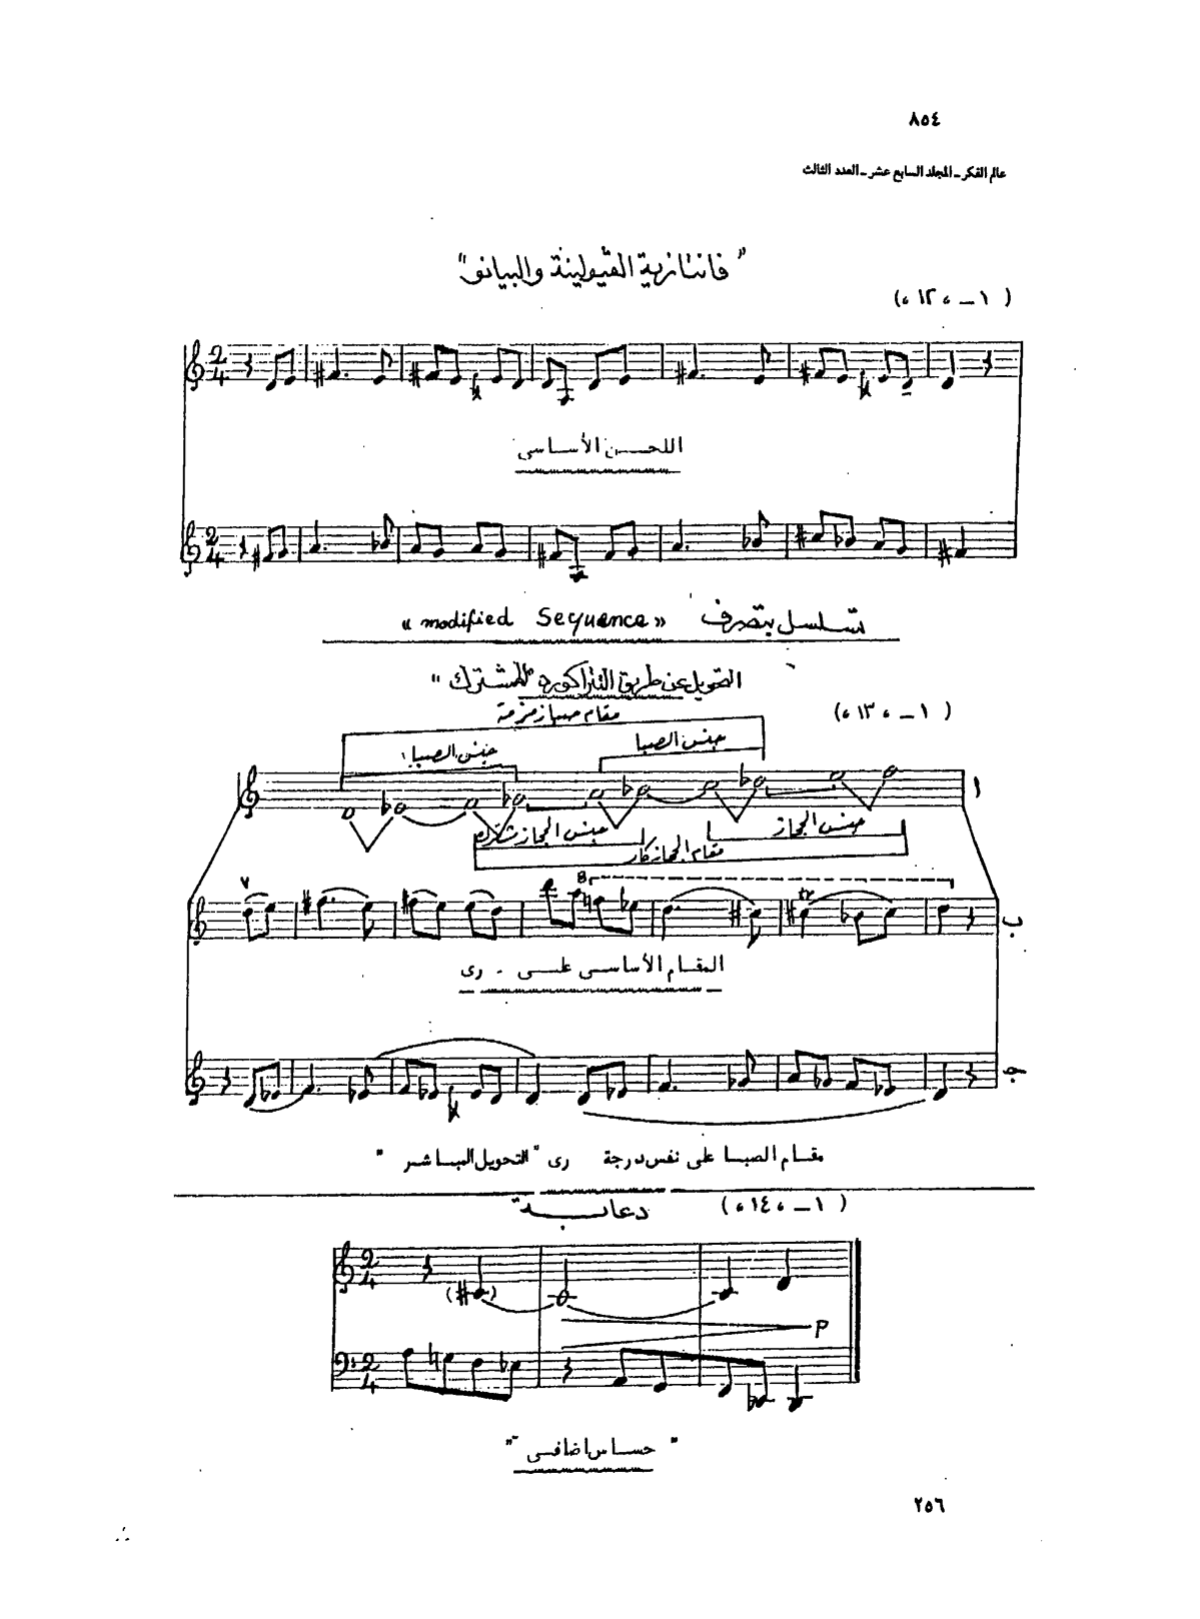 ٨٥٤
عالم الفكر ـ المجلد السابع عشر ـ العدد الثالث
"فانتازية الڤيولينة والبيانو"
(١ ـ ١٢٠)
اللحن الأساسى
تسلسل بتصرف «modified Sequence»
التحويل عن طريق التتراكورد "المشترك"
(١ ـ ١٣٠)
مقام صبا زمزمة
جنس الصبا
جنس الصبا
أ
جنس الحجاز مشترك
جنس الحجاز
مقام الحجازكار
٧
8
tr
ب
المقام الأساسى على ـ رى
جـ
مقام الصبا على نفس درجة رى "التحويل المباشر"
(١ ـ ١٤٠)
دعابة
P
"حساس اضافى"
٢٥٦